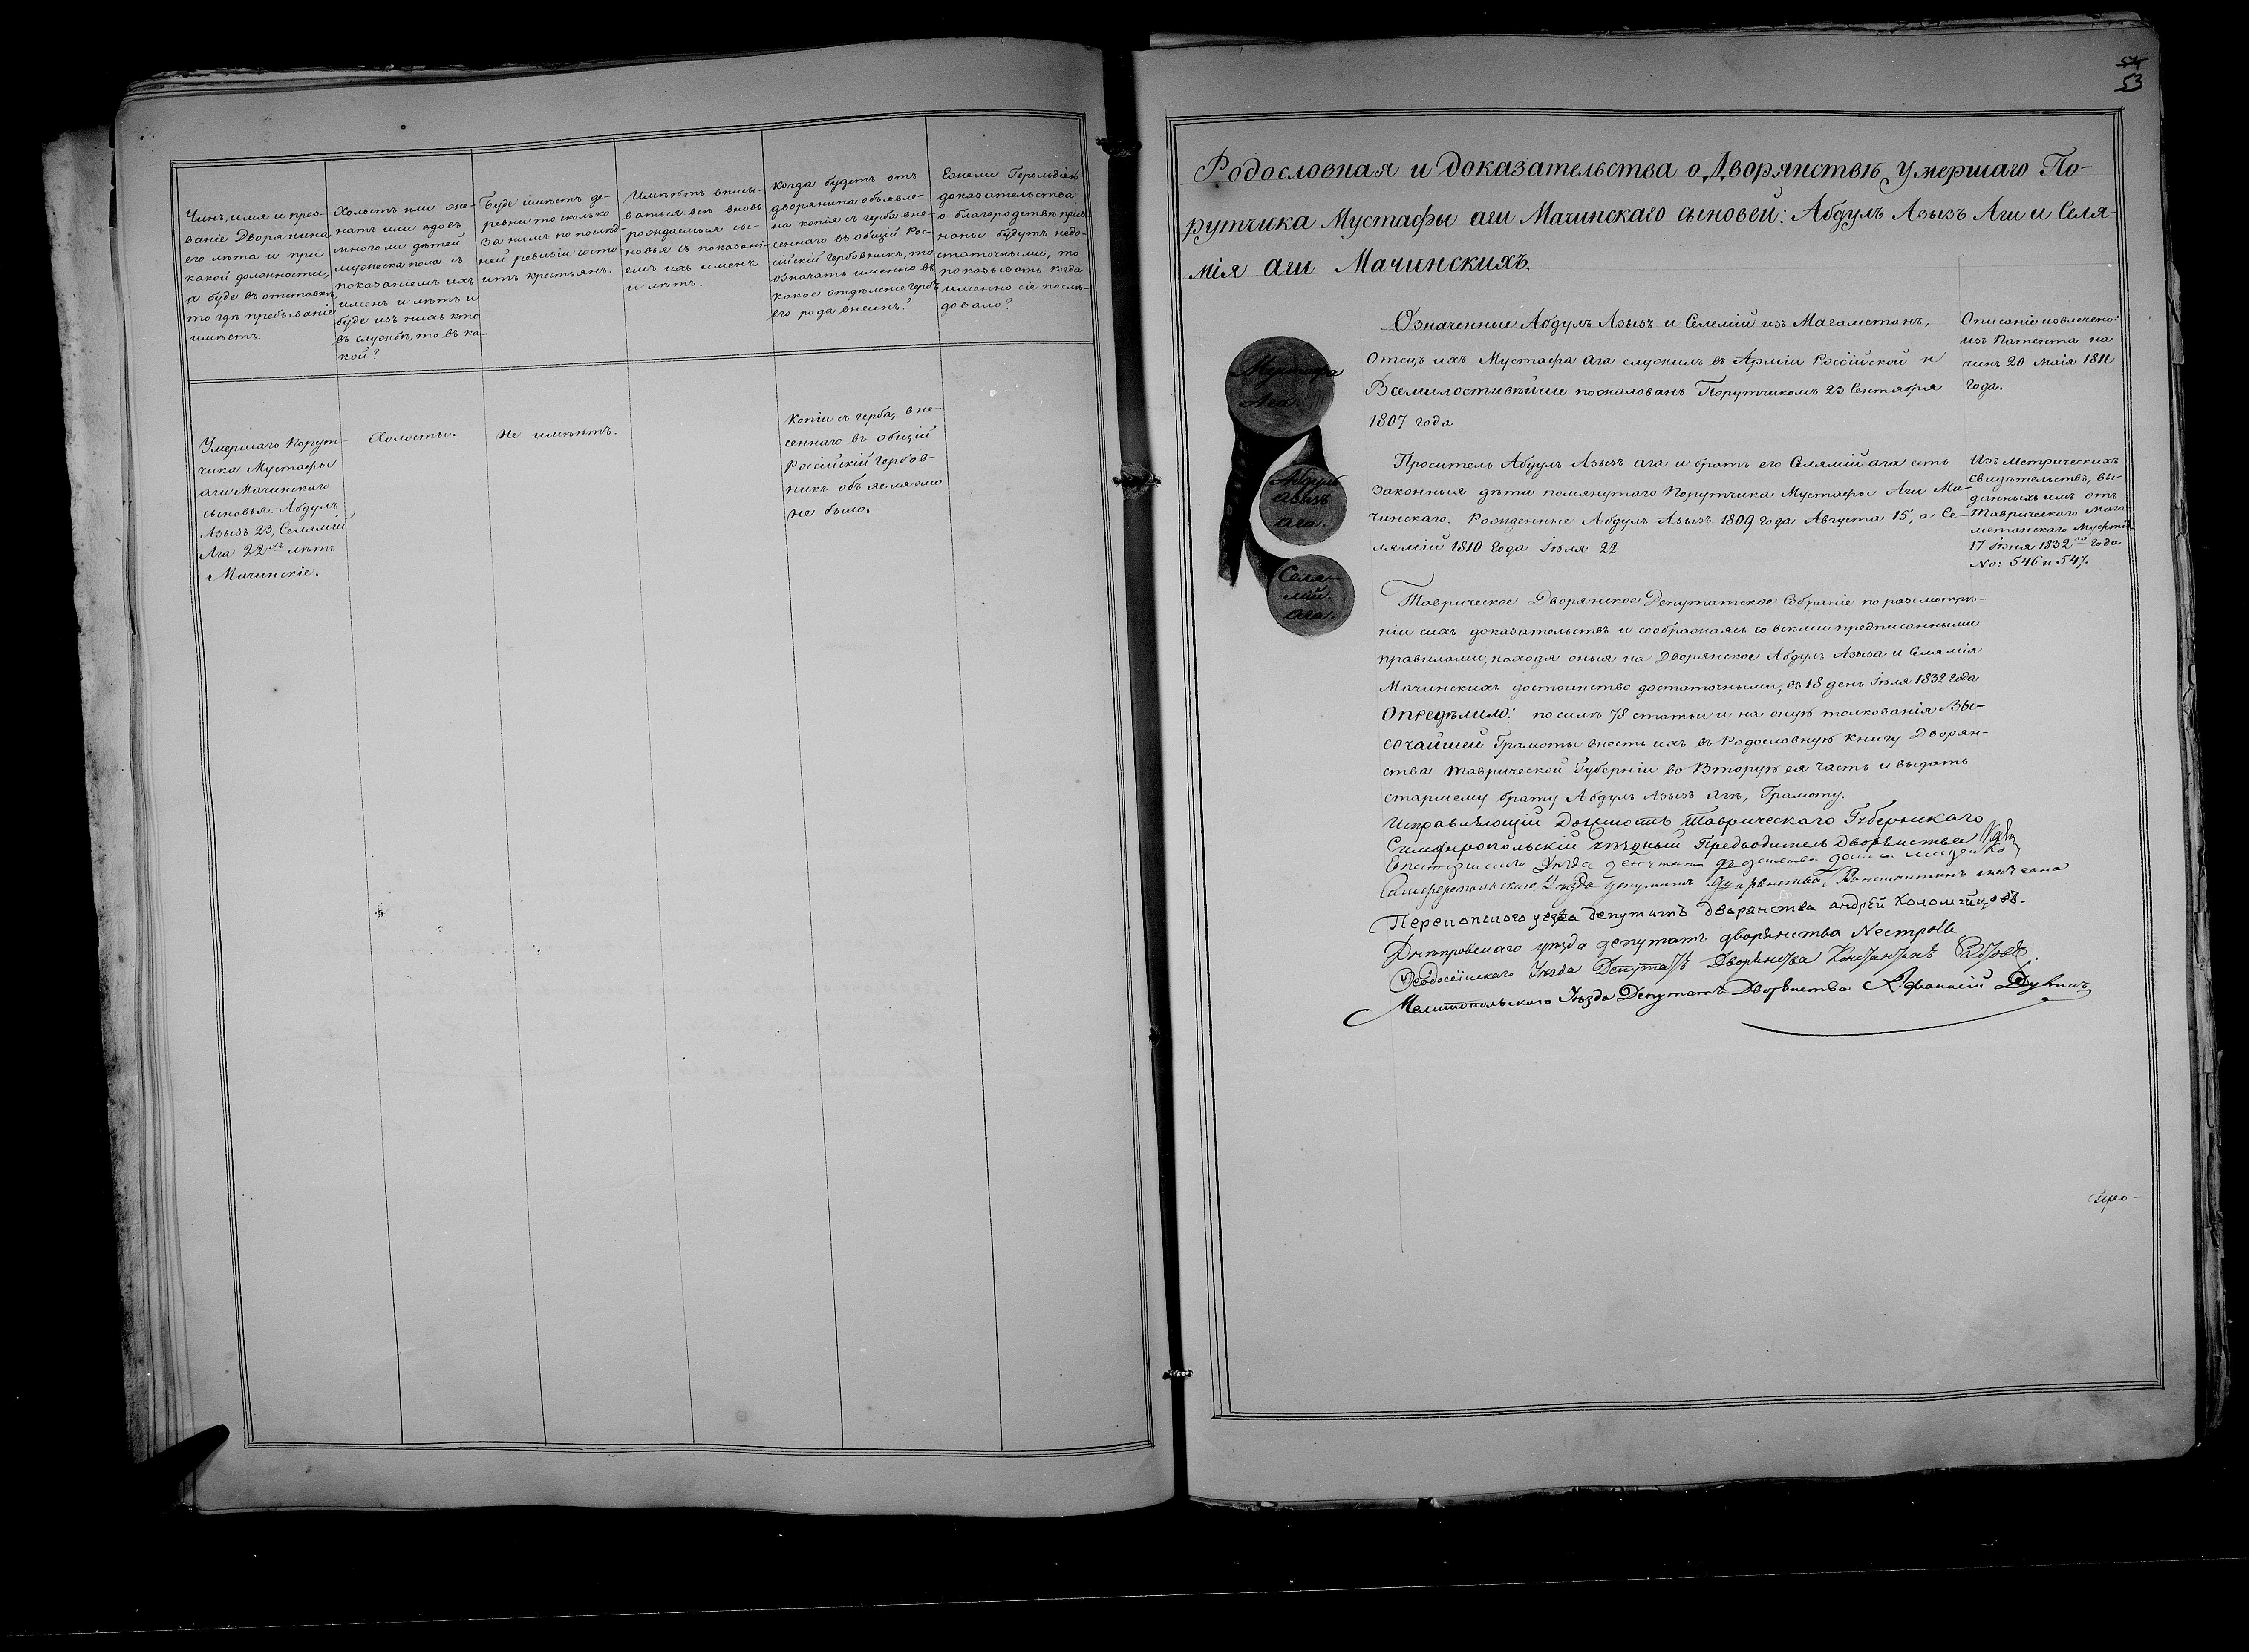 Чинъ, имя и проз-
ваніе Дворянина
его лѣта и при
какой должности,
а буде въ отставкѣ,
то гдѣ пребываніе
имѣетъ.
Холостъ или же-
натъ или вдовъ
многоли дѣтей
мужеска пола съ
показаніемъ ихъ
именъ и лѣтъ и
буде изъ нихъ кто
въ службѣ, то въ ка-
кой?
Буде имѣетъ де-
ревни то сколько
за нимъ по послѣд-
ней ревизіи состо-
итъ крестьянъ.
Имѣетъ вписы-
ваться всѣ вновь
рождаемыя сы-
новья съ показані-
емъ ихъ именъ
и лѣтъ.
Когда будетъ отъ
дворянина объявле-
на копія съ герба вне-
сеннаго въ общій Рос-
сійскій Гербовникъ, то
означать именно въ
какое отдѣленіе гербъ
его рода внесенъ?
Ежели Герольдіею
доказательства
о благородствѣ приз-
наны будутъ недо-
статочными, то
показывать когда
именно сіе послѣ-
довало?
Умершаго Порут-
чика Мустафы
аги Мачинскаго
сыновья: Абдулъ
Азызъ 23, Селямій
Ага 22хъ лѣтъ
Мачинскіе.
Холосты.
Не имѣютъ.
Копіи съ герба, вне-
сеннаго въ общій
Россійскій Гербов-
никъ объявляемо
не было.
54
53
Родословная и доказательства о Дворянствѣ умершаго По-
рутчика Мустафы аги Мачинскаго сыновей: Абдулъ Азызъ Аги и Селя-
мія аги Мачинскихъ.
Мустафа
Ага.
Абдулъ
Азызъ
Ага.
Селя-
мій
Ага.
Означенные Абдулъ Азызъ и Селемій изъ Магаметанъ,
Отецъ ихъ Мустафа ага служилъ въ Арміи Россійской и
Всемилостивѣйше пожалованъ Порутчикомъ 23 Сентября
1807 года
Описаніе извлечено:
изъ Патента на
чинъ 20 Маія 1811
года.
Проситель Абдулъ Азызъ ага и братъ его Селямій ага есть
законныя дѣти помянутаго Порутчика Мустафы Аги Ма-
чинскаго. Рожденные Абдулъ Азызъ 1809 года Августа 15, а Се-
лямій 1810 года Іюля 22
Изъ Метрическихъ
свидѣтельствъ, вы-
данныхъ имъ отъ
Таврическаго Мага-
метанскаго Муфтія
17 Іюня 1832го года
No: 546 и 547.
Таврическое Дворянское Депутатское Собраніе по разсмотрѣ-
ніи сихъ доказательствъ и сообразжаясь со всѣми предписанными
правилами, находя оныя на Дворянское Абдулъ Азыза и Селямія
Мачинскихъ достоинство достаточными, въ 18 день Іюля 1832 года
Опредѣлило: по силѣ 78 статьи и на оную толкованія Вы-
сочайшей Грамоты внесть ихъ въ Родословную книгу Дворян-
ства Таврической Губерніи во Вторую ея часть и выдать
старшему брату Абдулъ Азызъ Агѣ, Грамоту.
Исправляющій Должность Таврическаго Губернскаго
Симферопольскій уѣздный Предводитель Дворянства
Симферопольскаго Уѣзда Депутатъ Дворянства Константинъ
Перекопскаго уѣзда депутатъ дворянства андрей Коломійцовъ.
Днѣпровскаго уѣзда депутатъ дворянства
Ѳеодосійскаго Уѣзда Депутатъ Дворянства Константинъ
Мелитопольскаго Уѣзда Депутатъ Дворянства